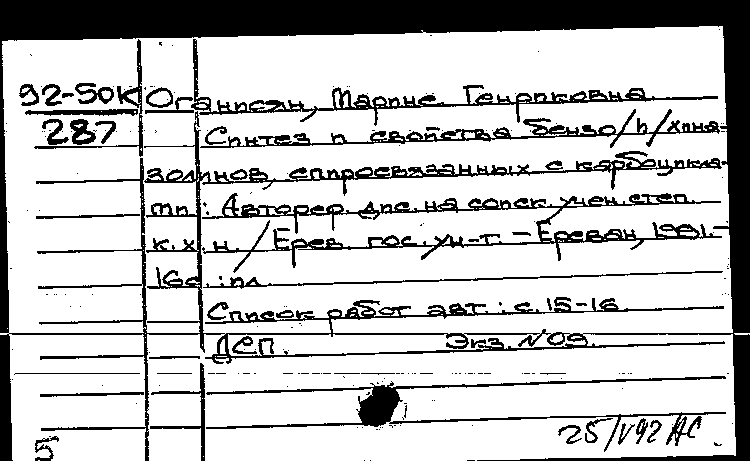 92-50К Оганисян, Марине Генриковна
287 Синтез и свойства бензо/h/хина-
золинов, спиросвязанных с карбоцикла-
ми : Автореф. дис. на соиск. учен. степ.
к. х. н. / Ерев. гос. ун-т. - Ереван, 1991. -
16с. : ил.
Список работ авт. : с. 15-16
ДСП. Экз. №09.
25/V92 АС.
5